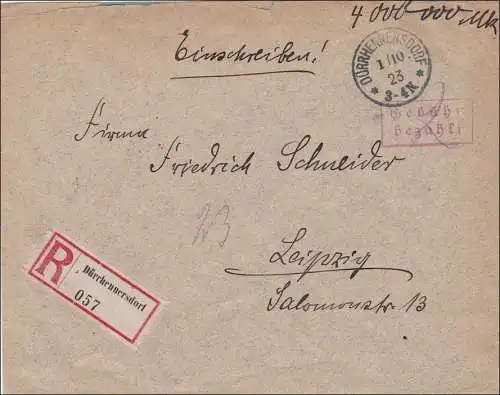 4 000 000 Mk
Einschreiben!
DÜRRHENNERSDORF
1/10.
23
* 3-4N *
Gebühr
bezahlt
Firma
Friedrich Schneider
23
Leipzig
Salomonstr. 13
R
Dürrhennersdorf
057